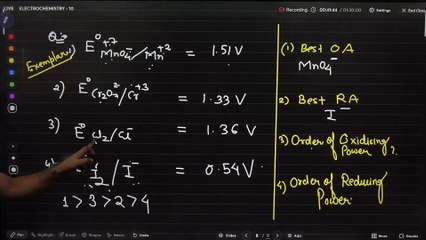 LIVE ELECTROCHEMISTRY - 10
Recording 00:41:44 / 01:30:00
End Class
Q:-
Exemplar:
1) E° +7 MnO4⁻ / Mn+2 = 1.51 V
2) E° Cr2O7²⁻ / Cr+3 = 1.33 V
3) E° Cl2/Cl⁻ = 1.36 V
I2 / I⁻ = 0.54 V
1 > 3 > 2 > 4
(1) Best OA
MnO4⁻
2) Best RA
I⁻
3) Order of Oxidising Power ?
4) Order of Reducing Power.